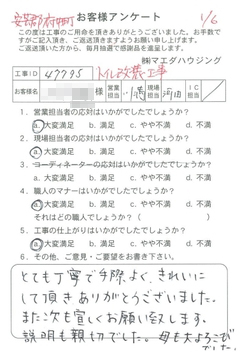 安芸郡府中町 お客様アンケート 1/6
この度は工事のご用命を頂きありがとうございました。お手数で
すがご記入頂き、ご返送頂きますようお願い申し上げます。
ご返送頂いた方から、毎月抽選で感謝品を進呈します。
㈱マエダハウジング
工事ID 47795 トイレ改装工事
お客様名 様 営業担当 現場担当 河田 IC担当
1. 営業担当者の応対はいかがでしたでしょうか?
a. 大変満足 b. 満足 c. やや不満 d. 不満
2. 現場担当者の応対はいかがでしたでしょうか?
a. 大変満足 b. 満足 c. やや不満 d. 不満
3. コーディネーターの応対はいかがでしたでしょうか?
a. 大変満足 b. 満足 c. やや不満 d. 不満
4. 職人のマナーはいかがでしたでしょうか?
a. 大変満足 b. 満足 c. やや不満 d. 不満
それはどの職人でしょうか? (
5. 工事の仕上がりはいかがでしたでしょうか?
a. 大変満足 b. 満足 c. やや不満 d. 不満
6. その他、ご意見・ご要望をお書き下さい。
とても丁寧で手際よく、きれいに
して頂きありがとうございました。
また次も宜しくお願い致します。
説明も親切でした。母も大よろこび
でした。